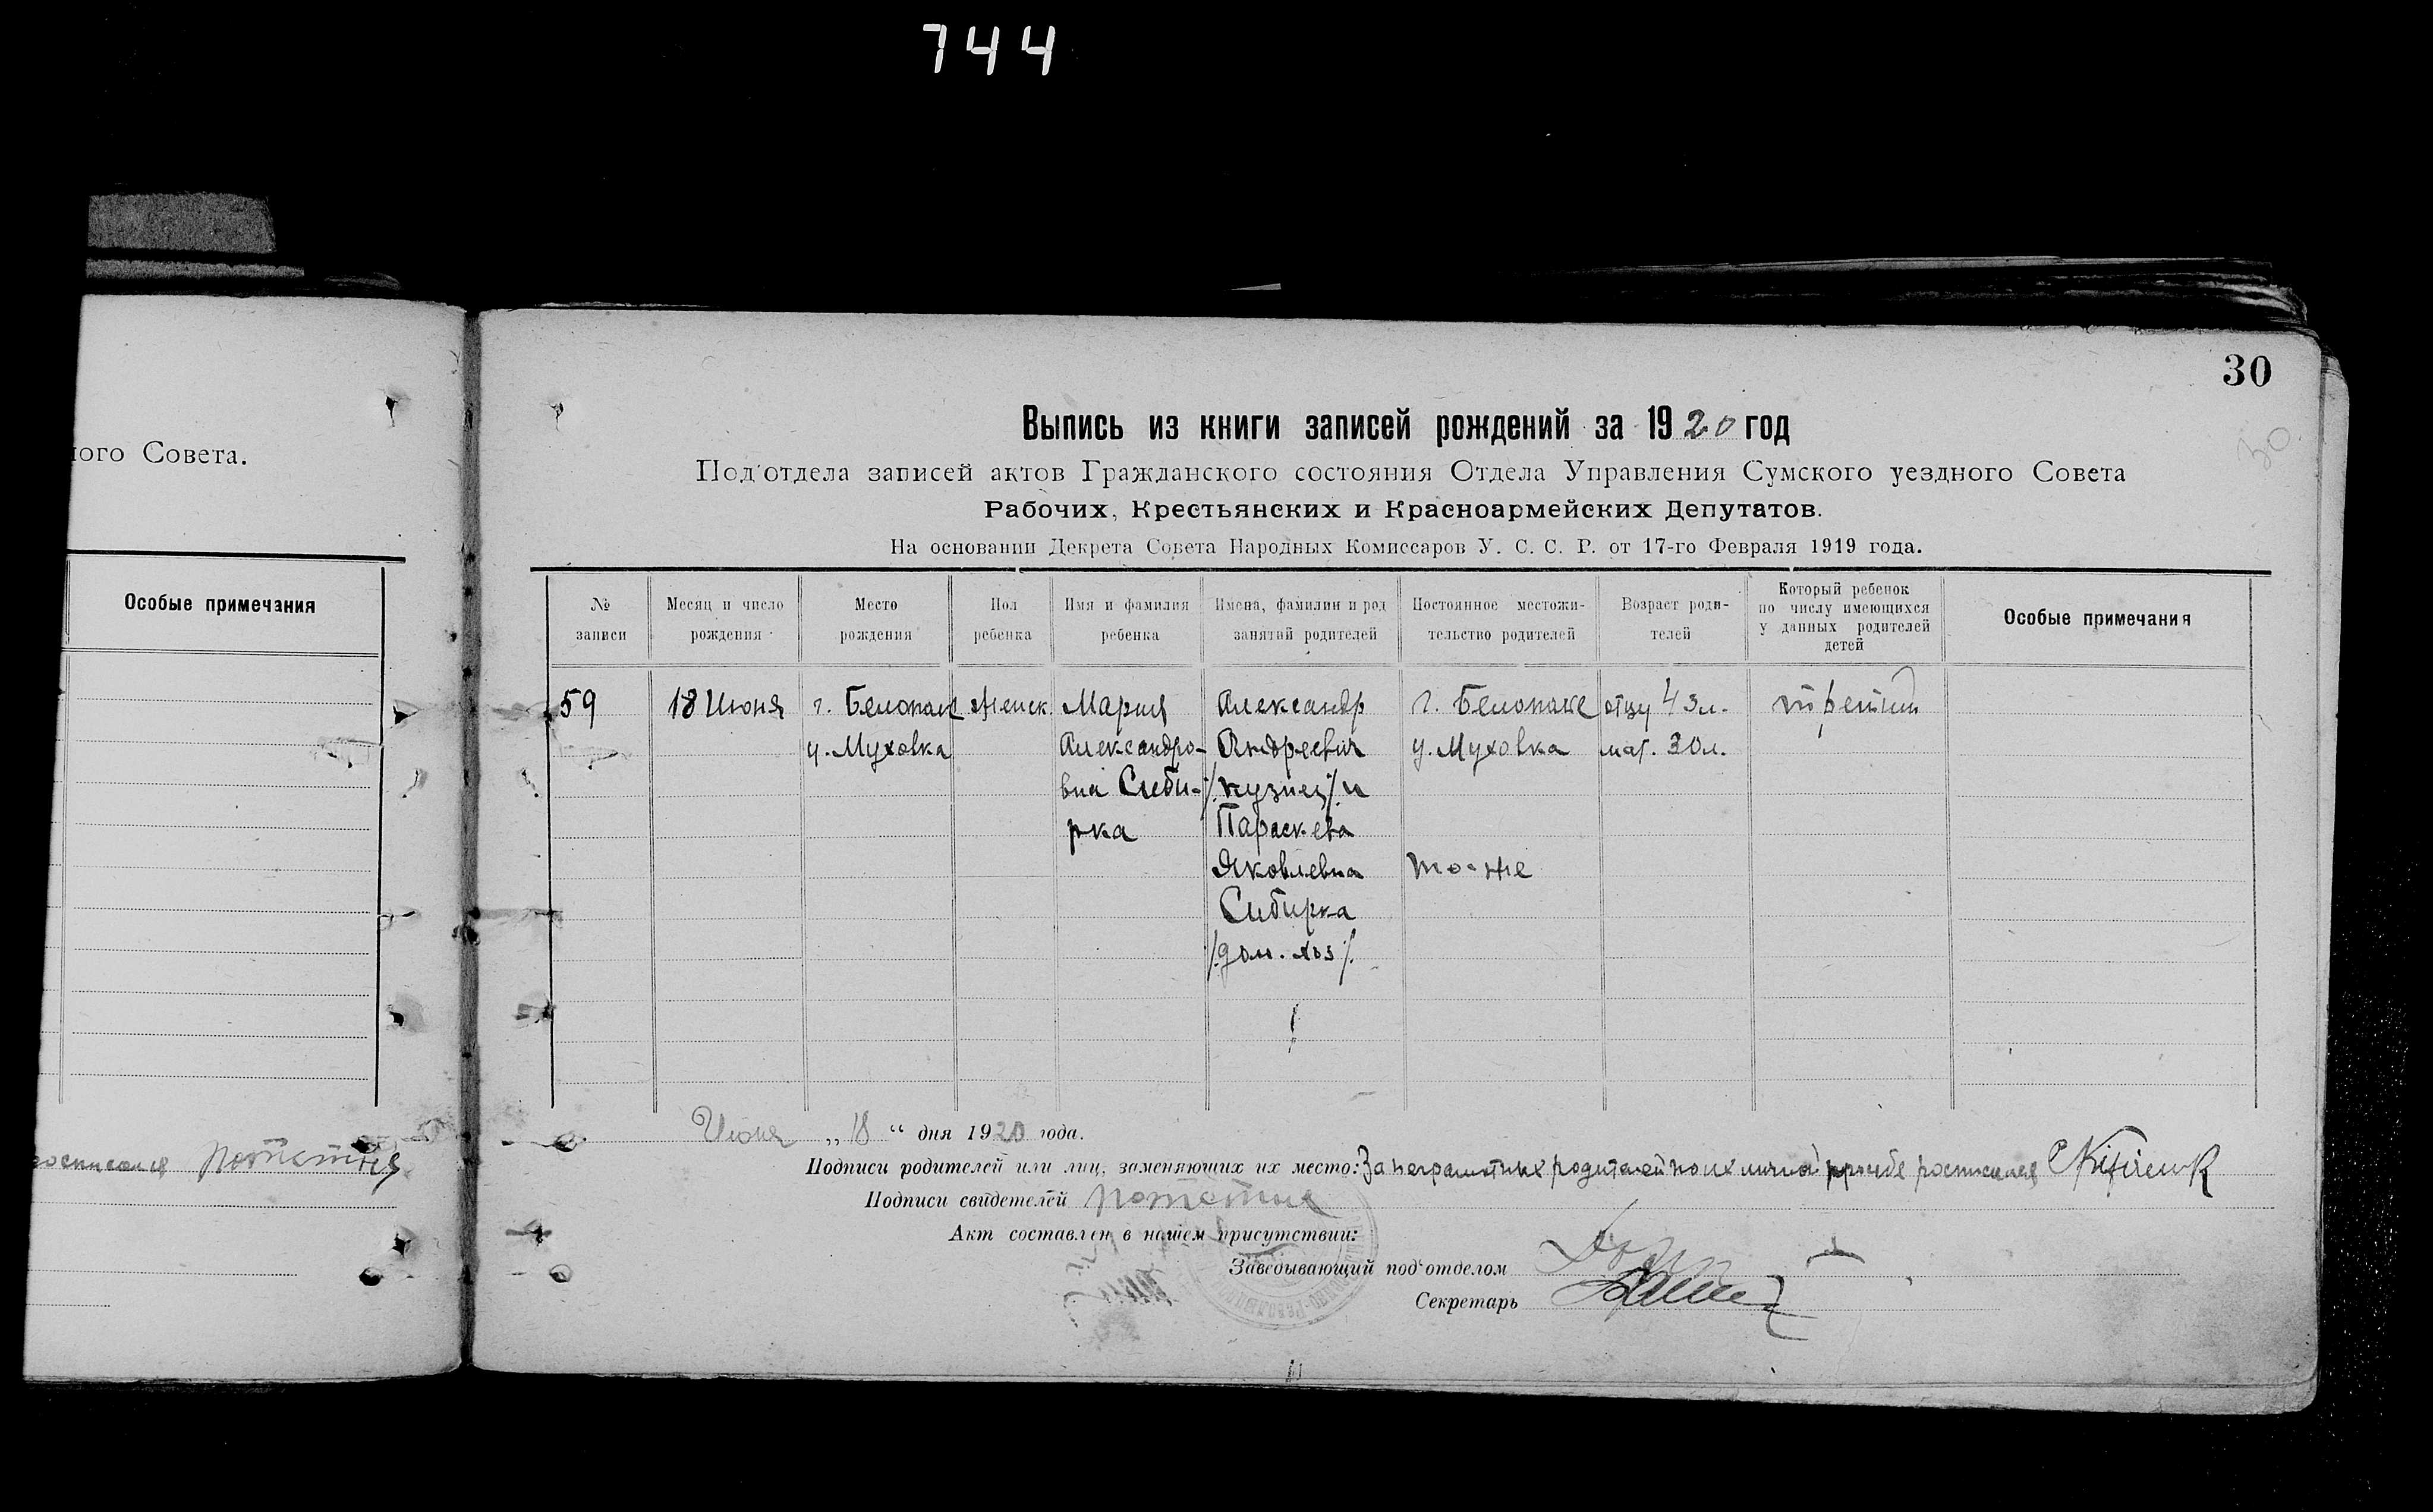 744
30
30
ного Совета.
Особые примечания
Выпись из книги записей рождений за 1920 год
Под'отдела записей актов Гражданского состояния Отдела Управления Сумского уездного Совета
Рабочих, Крестьянских и Красноармейских Депутатов.
На основании Декрета Совета Народных Комиссаров У. С. С. Р. от 17-го Февраля 1919 года.
№ записи
Месяц и число рождения
Место рождения
Пол ребенка
Имя и фамилия ребенка
Имена, фамилии и род занятий родителей
Постоянное местожительство родителей
Возраст родителей
Который ребенок по числу имеющихся у данных родителей детей
Особые примечания
59 18 Июня г. Белополе женск. Мария Александр г. Белополе отцу 43л. третий
у. Муховка Александро- Андреевич у. Муховка мат. 30л.
вна Сиби- /кузнец/ и
рка Параскева
Яковлевна то-же
Сибирка
/дом. хоз/.
Июня „18“ дня 1920 года.
Подписи родителей или лиц, заменяющих их место: За неграмотных родителей по их личной просьбе росписался
росписался
Подписи свидетелей
Акт составлен в нашем присутствии:
Заведывающий под'отделом
Секретарь